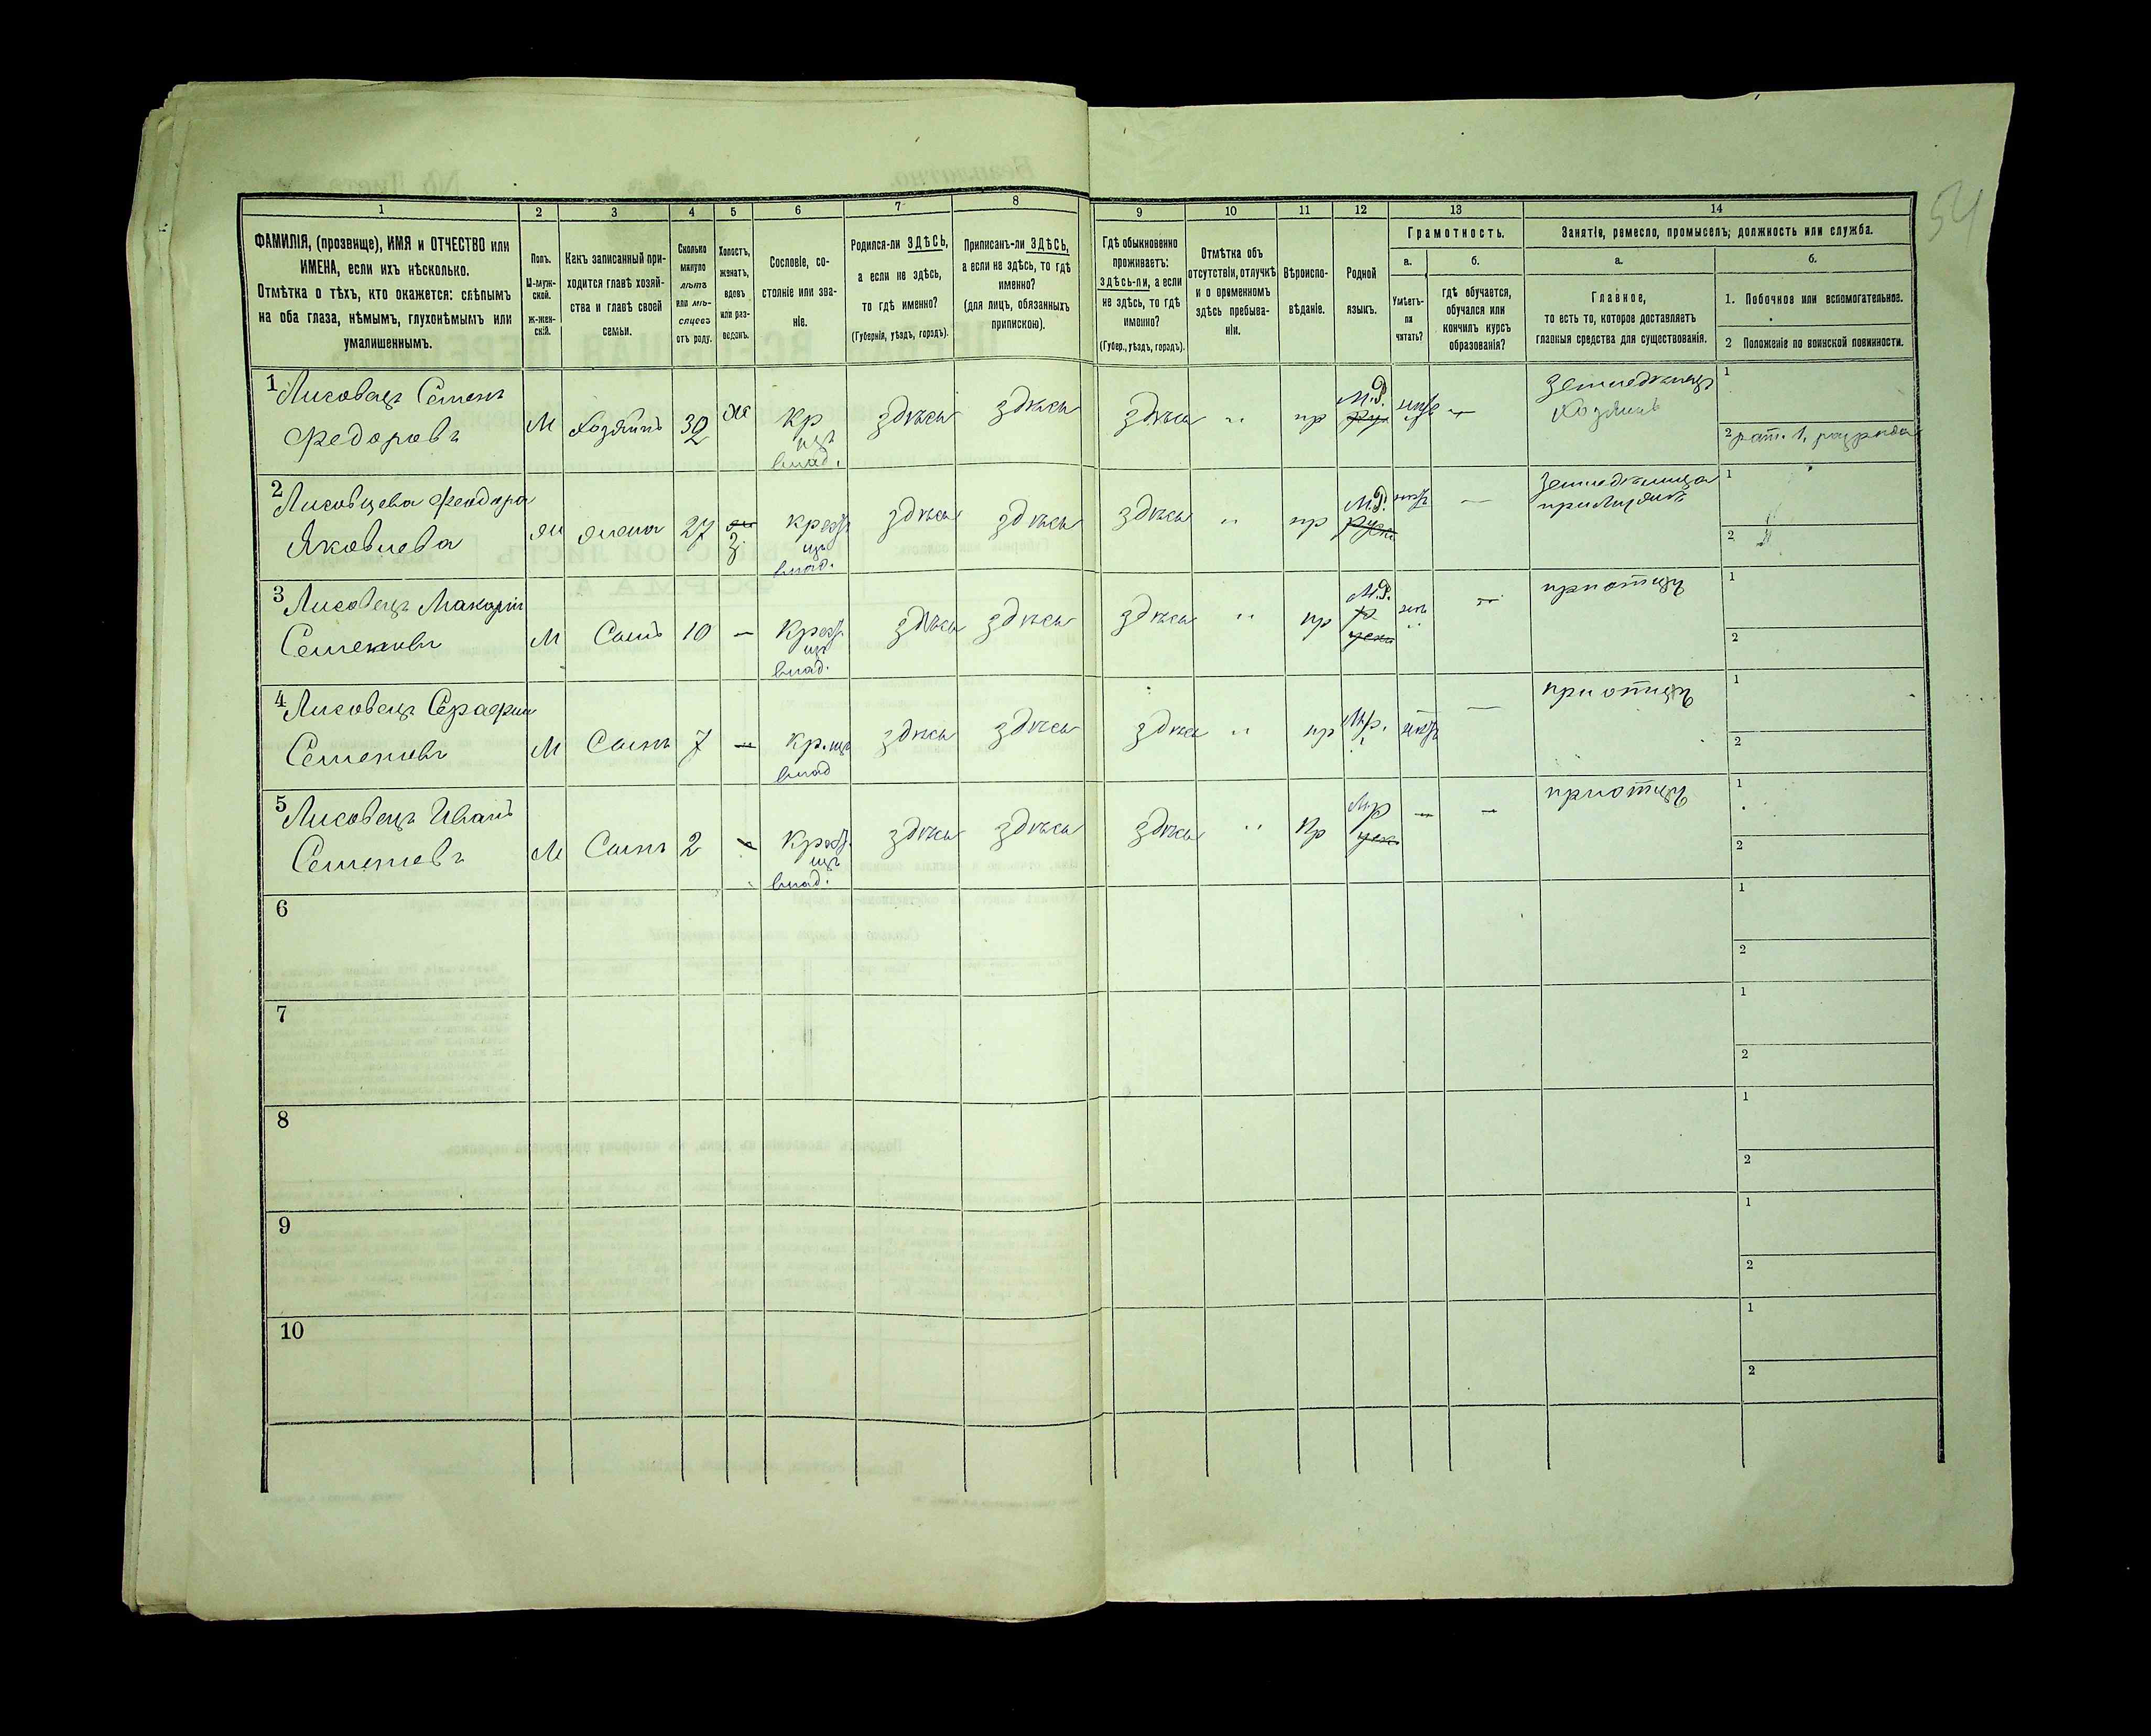 54
1 2 3 4 5 6 7 8 9 10 11 12 13 14
ФАМИЛІЯ, (прозвище), ИМЯ и ОТЧЕСТВО или
ИМЕНА, если ихъ нѣсколько.
Отмѣтка о тѣхъ, кто окажется: слѣпымъ
на оба глаза, нѣмымъ, глухонѣмымъ или
умалишеннымъ.
Полъ.
М-муж-
ской.
ж-жен-
скій.
Какъ записанный при-
ходится главѣ хозяй-
ства и главѣ своей
семьи.
Сколько
минуло
лѣтъ
или мѣ-
сяцевъ
отъ роду.
Холостъ,
женатъ,
вдовъ
или раз-
веденъ.
Сословіе, со-
стояніе или зва-
ніе.
Родился-ли ЗДѢСЬ,
а если не здѣсь,
то гдѣ именно?
(Губернія, уѣздъ, городъ).
Приписанъ-ли ЗДѢСЬ,
а если не здѣсь, то гдѣ
именно?
(для лицъ, обязанныхъ
припискою).
Гдѣ обыкновенно
проживаетъ:
здѣсь-ли, а если
не здѣсь, то гдѣ
именно?
(Губер., уѣздъ, городъ).
Отмѣтка объ
отсутствіи, отлучкѣ
и о временномъ
здѣсь пребыва-
ніи.
Вѣроиспо-
вѣданіе.
Родной
языкъ.
Грамотность.
а.
Умѣетъ-
ли
читать?
б.
гдѣ обучается,
обучался или
кончилъ курсъ
образованія?
Занятіе, ремесло, промыселъ, должность или служба.
а.
Главное,
то есть то, которое доставляетъ
главныя средства для существованія.
б.
1. Побочное или вспомогательное.
2 Положеніе по воинской повинности.
1 Лисовецъ Семенъ
Федоровъ
М Хозяинъ 32 Ж Кр
изъ
влад.
здѣсь здѣсь здѣсь " пр М.Р. нѣтъ —
Земледѣлецъ
Хозяинъ
1
2 рат. 1, разряда
2 Лисовцева Феодора
Яковлева
Ж жена 27 З. Крест.
изъ
влад.
здѣсь здѣсь здѣсь " пр М.Р. нѣтъ —
Земледѣлица
при мужѣ
1
2
3 Лисовецъ Макарій
Семеновъ
М Сынъ 10 — Крест.
изъ
влад.
здѣсь здѣсь здѣсь " пр М.Р. —
при отцѣ
1
2
4 Лисовецъ Серафим
Семеновъ
М Сынъ 7 — Кр. изъ
влад
здѣсь здѣсь здѣсь " пр М.р. нѣтъ —
при отцѣ
1
2
5 Лисовецъ Иванъ
Семеновъ
М Сынъ 2 — Крест.
изъ
влад.
здѣсь здѣсь здѣсь " Пр М.р — —
при отцѣ
1
2
6
1
2
7
1
2
8
1
2
9
1
2
10
1
2